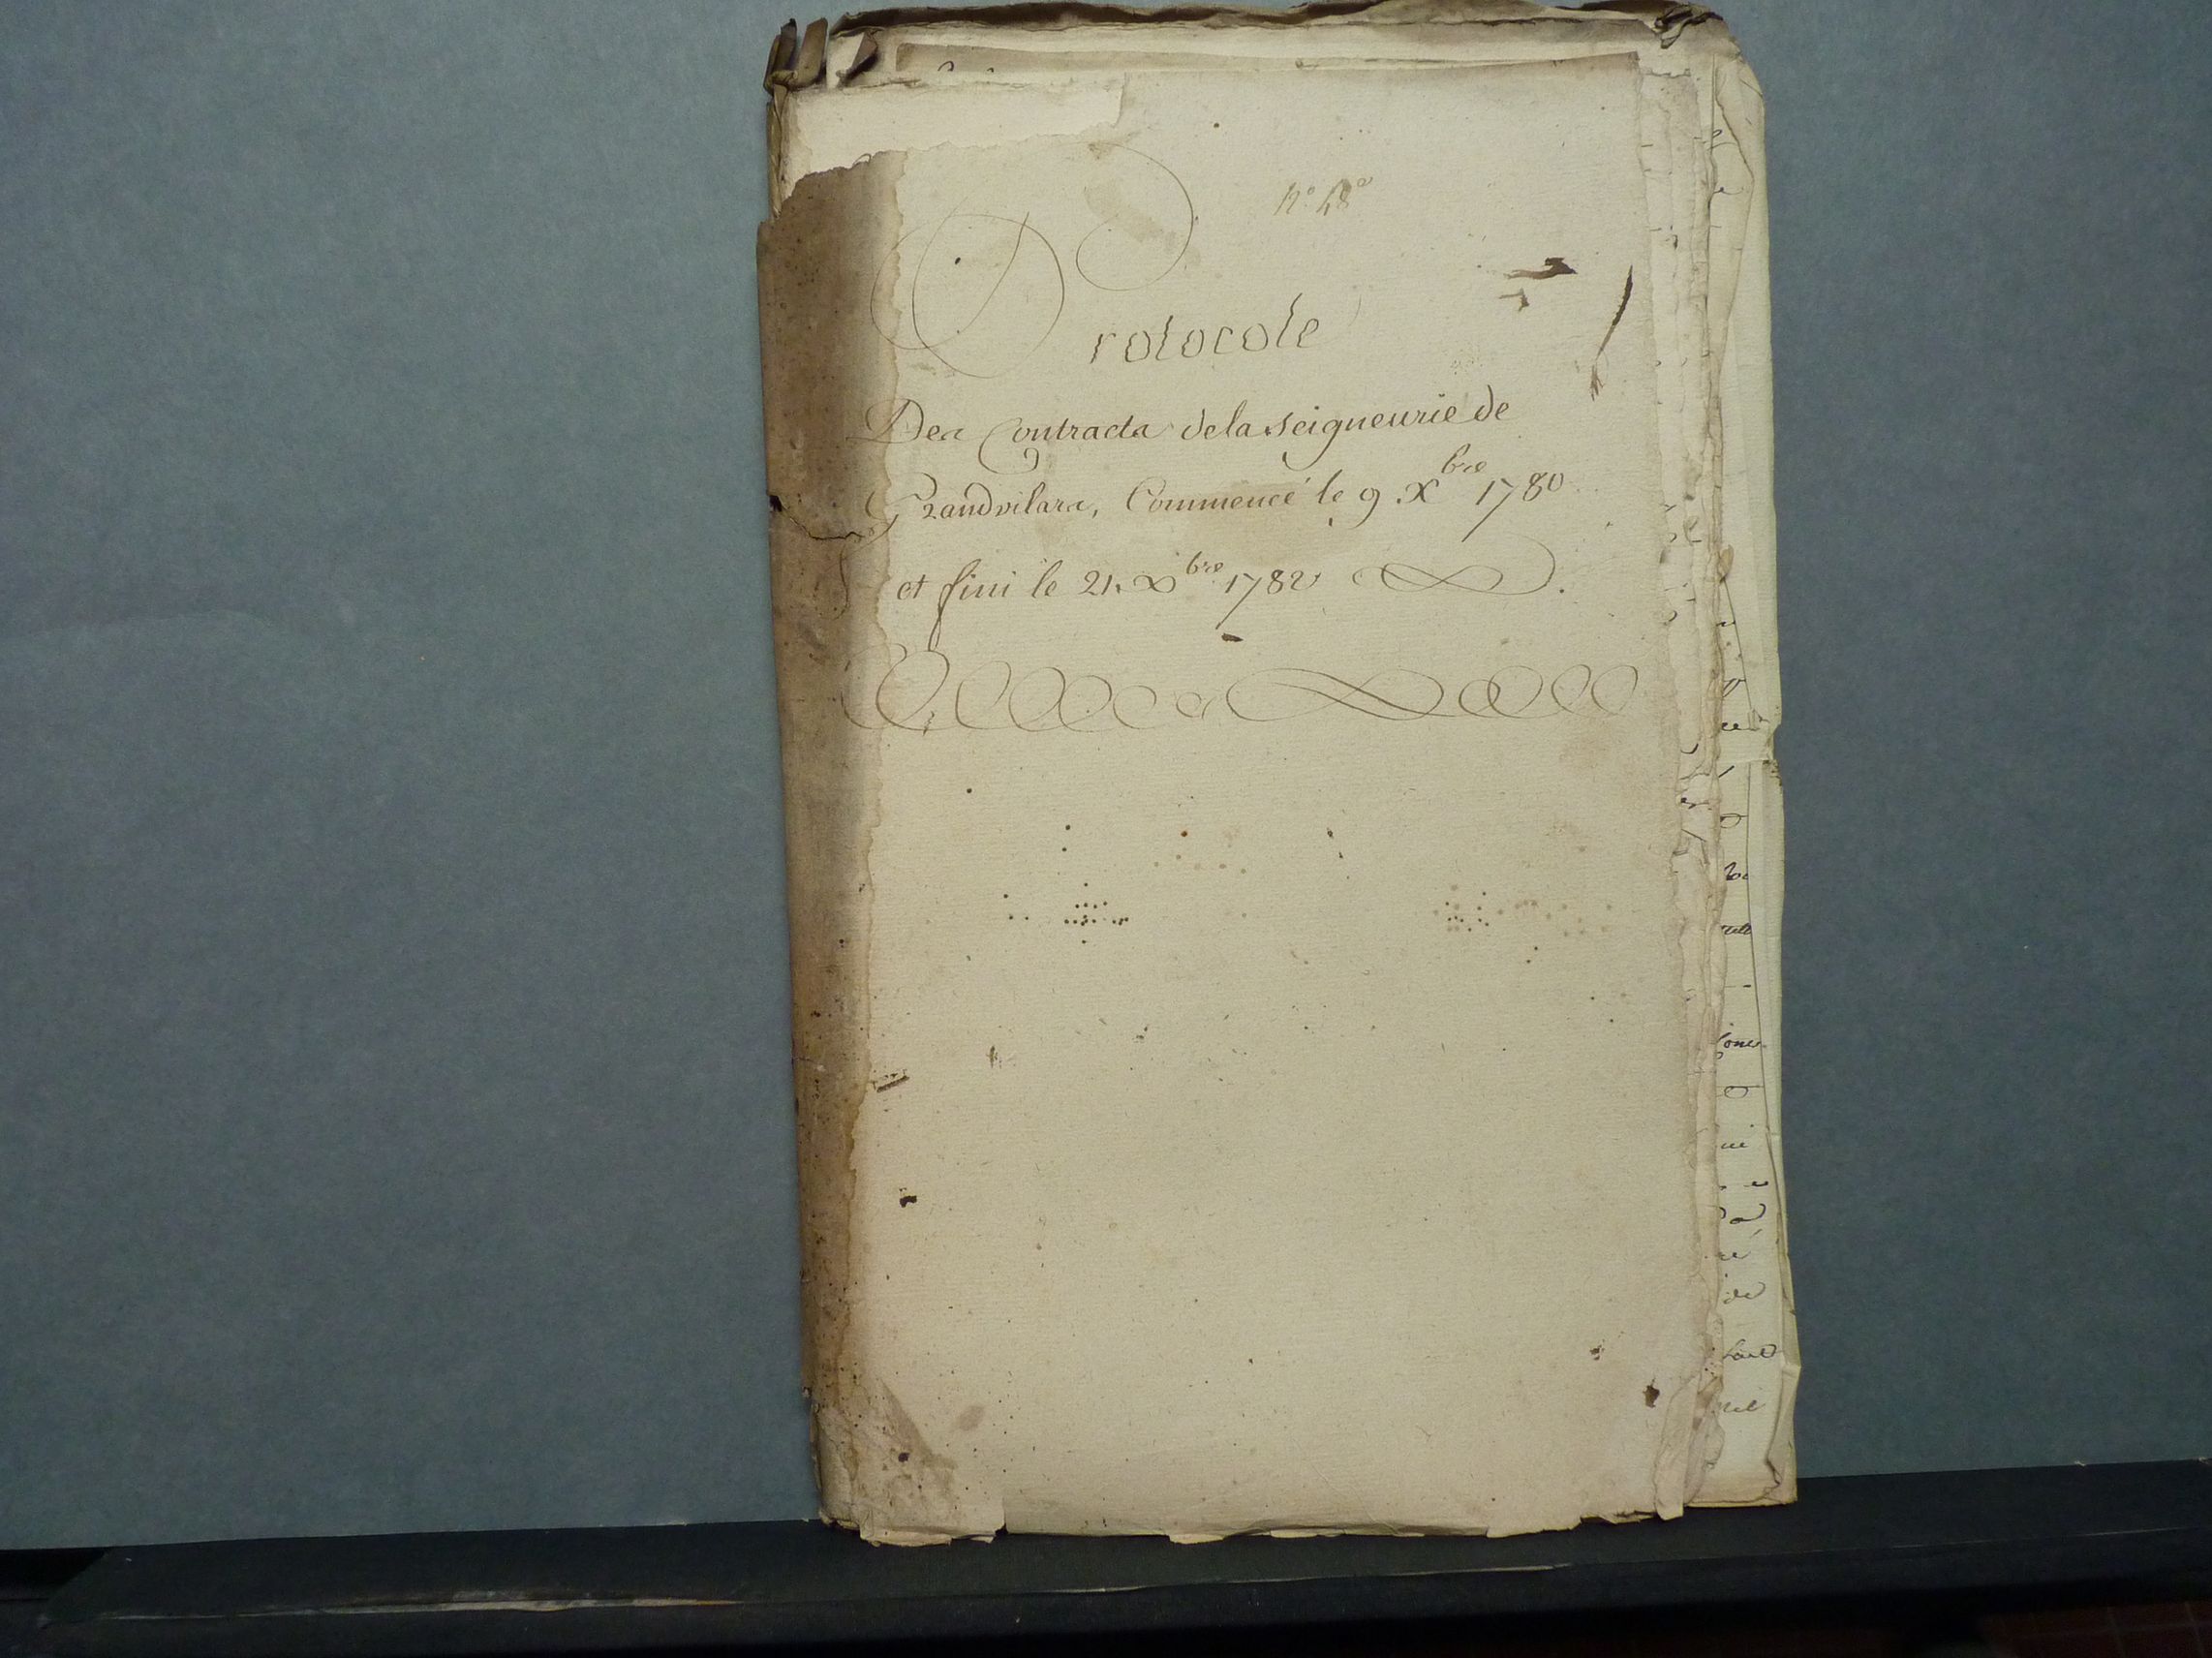 N° 48
Protocole
Des Contracts de la seigneurie de
Grandvilars, Commencé le 9. Xbre 1780
et fini le 21. Xbre 1782